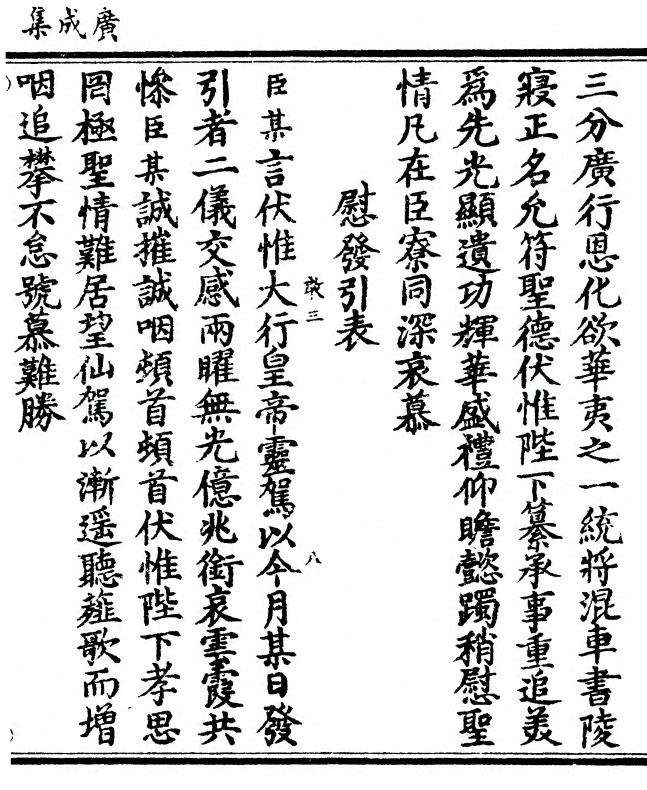 廣成集
三分廣行恩化欲華夷之一統將混車書陵
寢正名允符聖德伏惟陛下纂承事重追美
爲先光顯遺功輝華盛禮仰瞻懿躅稍慰聖
情凡在臣寮同深哀慕
慰發引表
敢三
八
臣某言伏惟大行皇帝靈駕以今月某日發
引者二儀交感兩曜無光億兆銜哀雲霞共
慘臣某誠摧誠咽頓首頓首伏惟陛下孝思
罔極聖情難居望仙駕以漸遥聽薤歌而增
咽追攀不怠號慕難勝